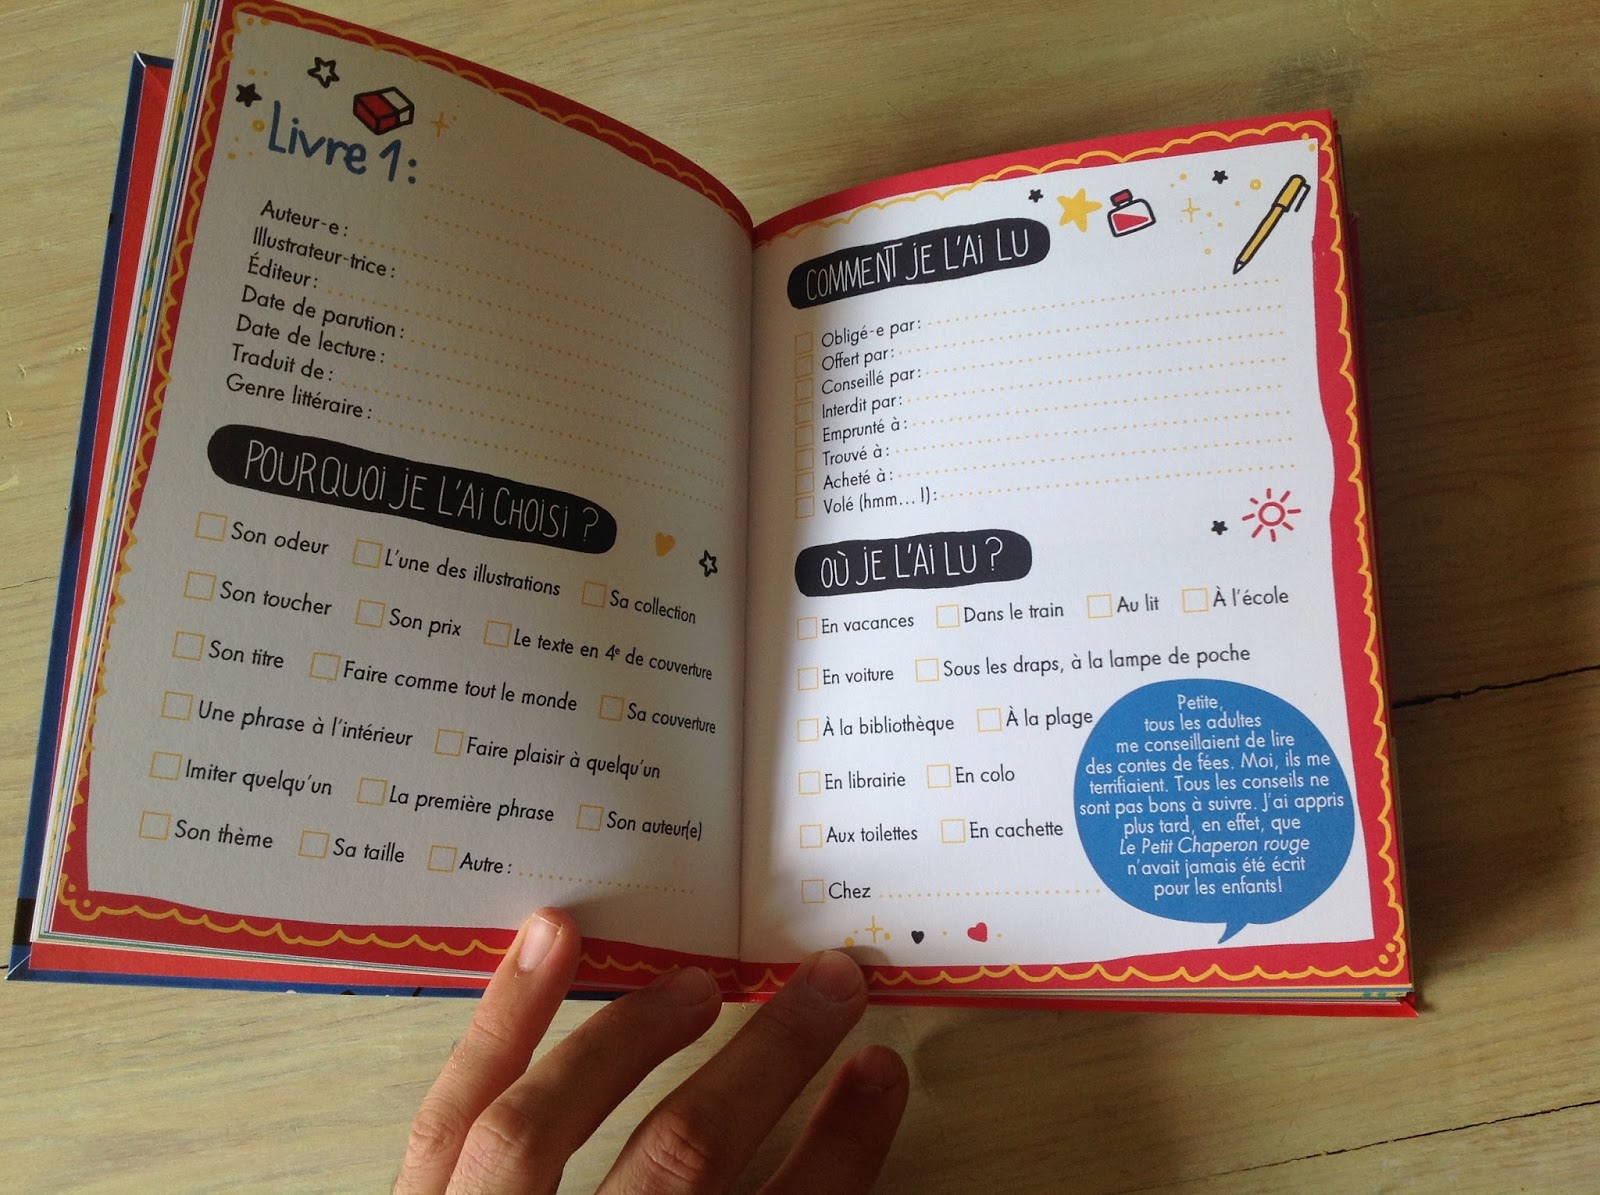 Livre 1 :
Auteur-e :
Illustrateur-trice :
Éditeur :
Date de parution :
Date de lecture :
Traduit de :
Genre littéraire :
POURQUOI JE L'AI CHOISI ?
Son odeur L'une des illustrations Sa collection
Son toucher Son prix Le texte en 4e de couverture
Son titre Faire comme tout le monde Sa couverture
Une phrase à l'intérieur Faire plaisir à quelqu'un
Imiter quelqu'un La première phrase Son auteur(e)
Son thème Sa taille Autre :
COMMENT JE L'AI LU
Obligé-e par :
Offert par :
Conseillé par :
Interdit par :
Emprunté à :
Trouvé à :
Acheté à :
Volé (hmm... !) :
OÙ JE L'AI LU ?
En vacances Dans le train Au lit À l'école
En voiture Sous les draps, à la lampe de poche
À la bibliothèque À la plage
En librairie En colo
Aux toilettes En cachette
Chez
Petite,
tous les adultes
me conseillaient de lire
des contes de fées. Moi, ils me
terrifiaient. Tous les conseils ne
sont pas bons à suivre. J'ai appris
plus tard, en effet, que
Le Petit Chaperon rouge
n'avait jamais été écrit
pour les enfants!